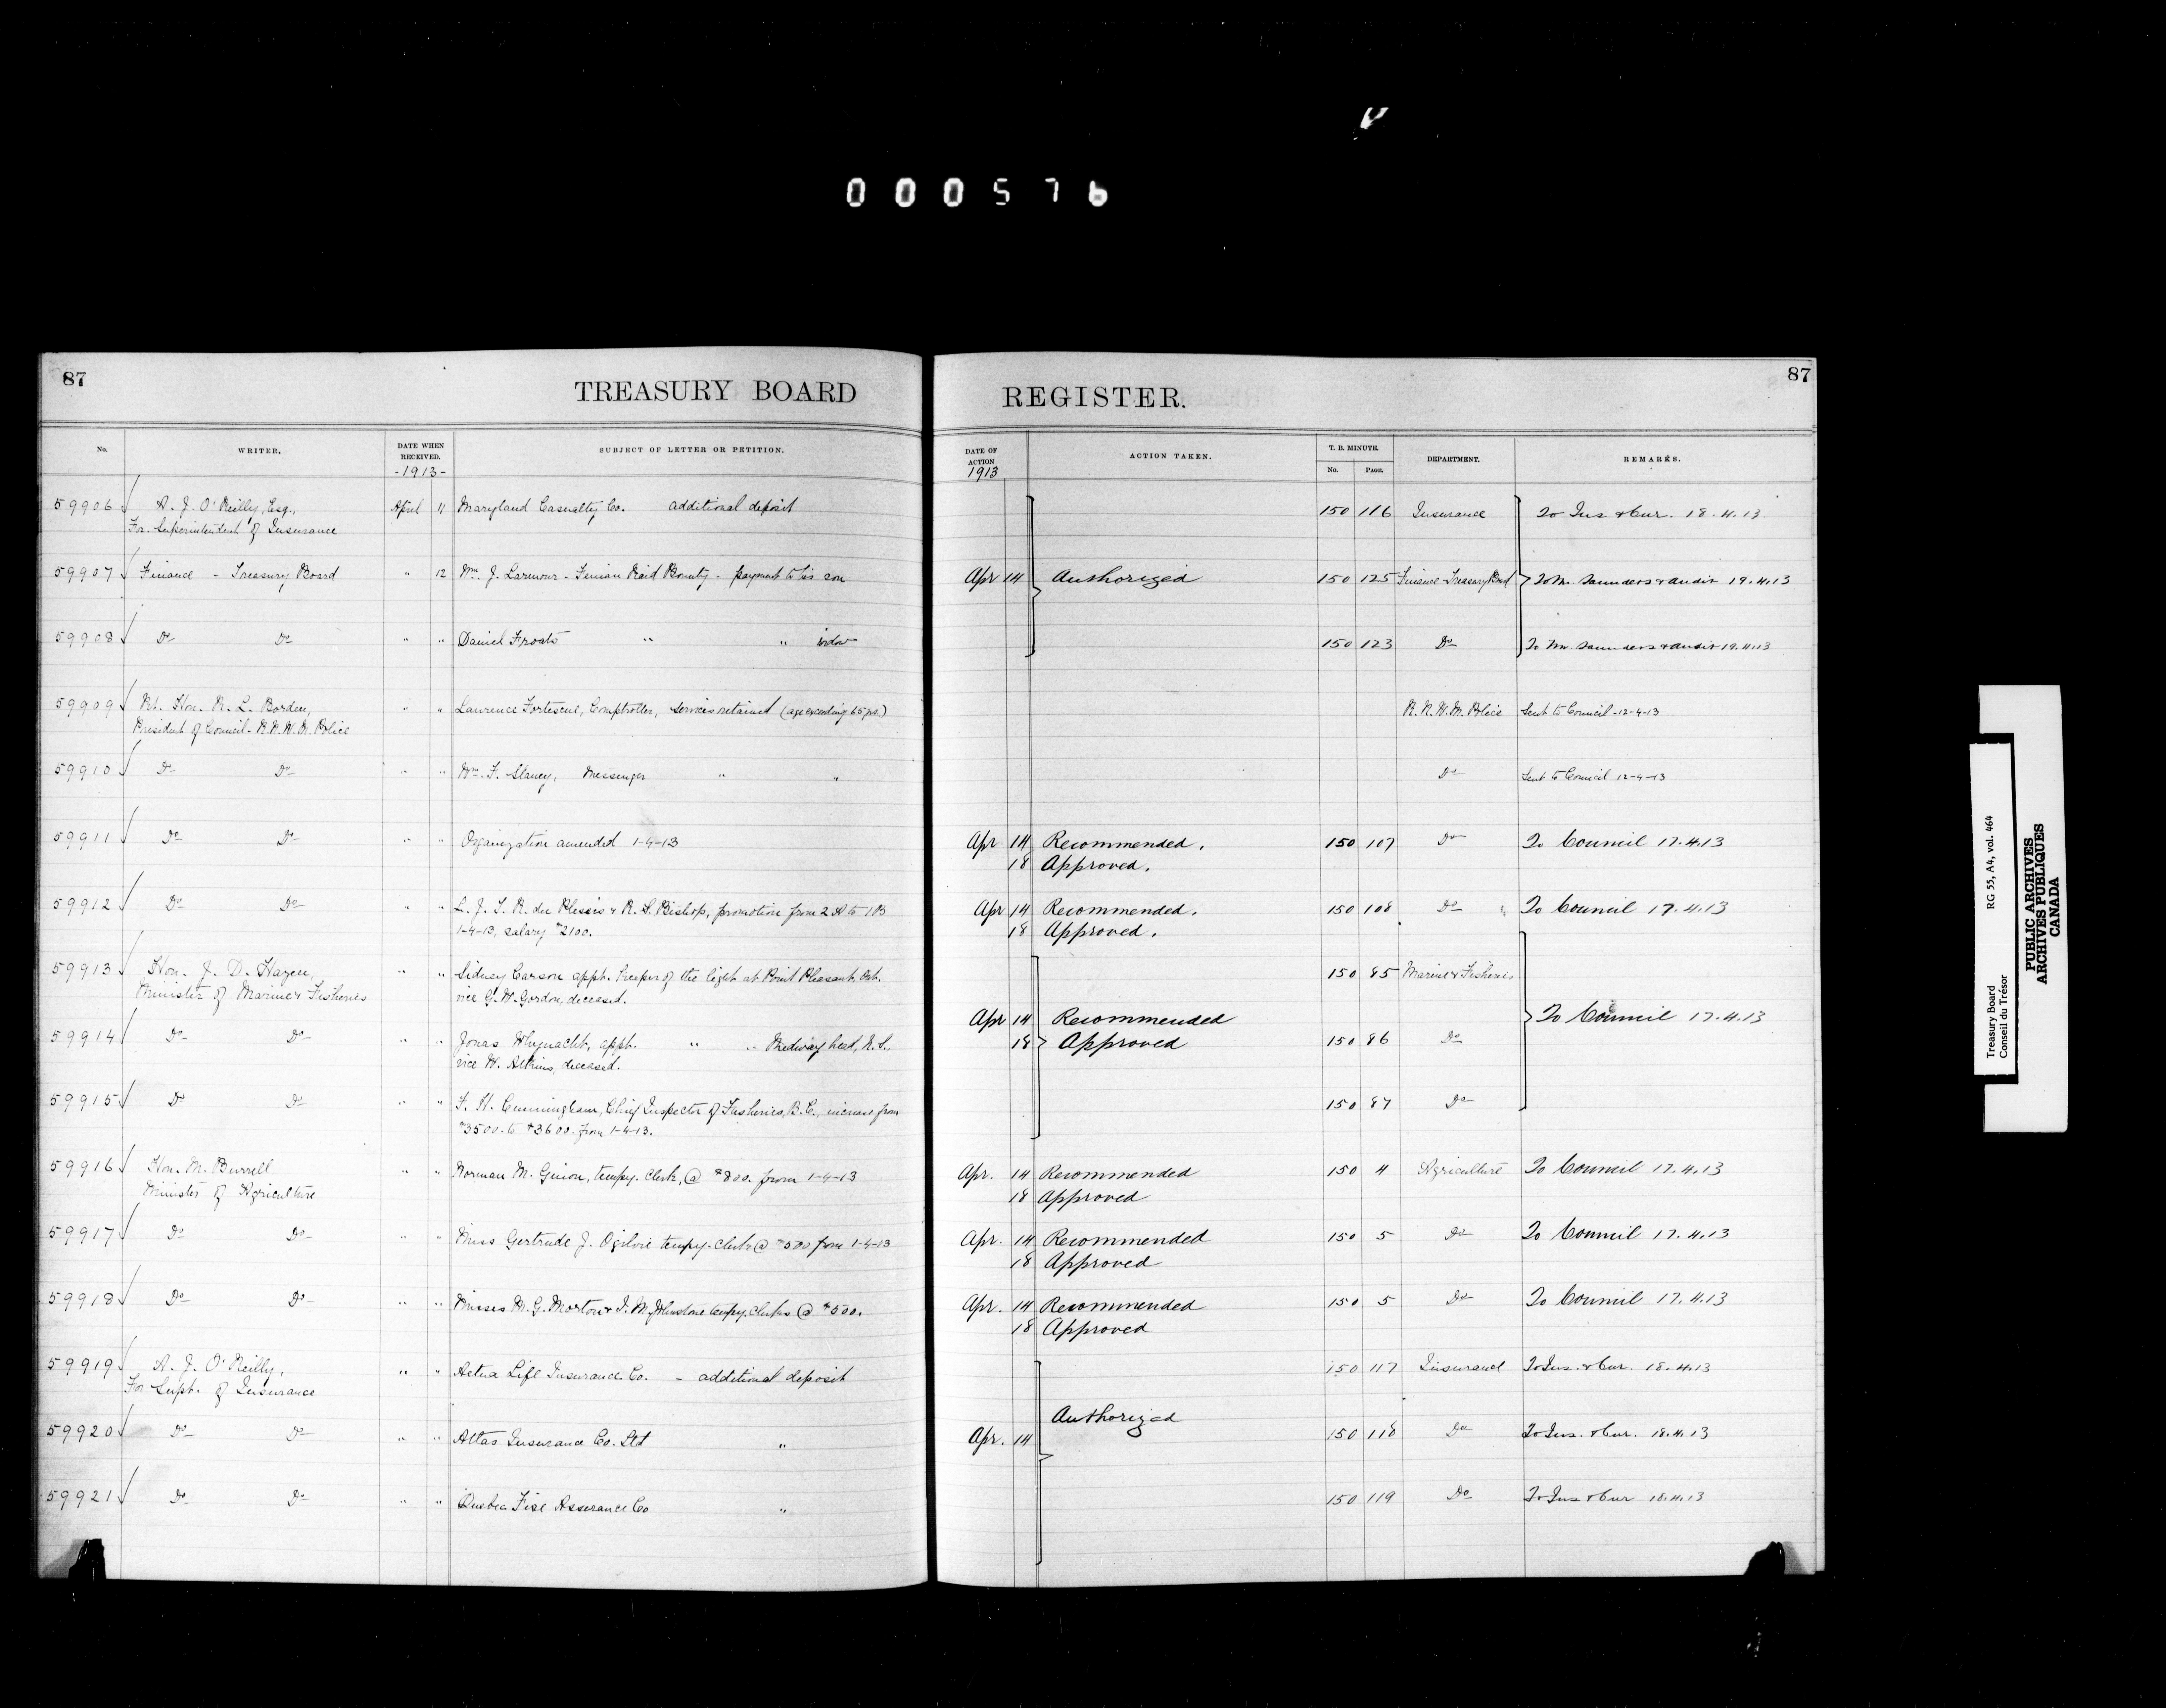 000576
87
TREASURY BOARD
REGISTER.
87
No.
WRITER.
DATE WHEN RECEIVED.
-1913-
SUBJECT OF LETTER OR PETITION.
DATE OF ACTION
1913
ACTION TAKEN.
T. B. MINUTE.
No. PAGE.
DEPARTMENT.
REMARKS.
59906 A. J. O'Reilly, Esq., April 11 Maryland Casualty Co. additional deposit 150 116 Insurance To Ins & Cur. 18.4.13
For Superintendent of Insurance
59907 Finance - Treasury Board " 12 Wm. J. Larmour - Fenian Raid Bounty - payment to his son Apr 14 Authorized 150 125 Finance Treasury Brd To Mr. Saunders & Audit 19.4.13
59908 Do Do " " Daniel Froats " " widow 150 123 Do To Mr. Saunders & Audit 19.4.13
59909 Rt. Hon. R. L. Borden, " " Lawrence Fortescue, Comptroller, services retained (age exceeding 65 yrs.) R. N. W. M. Police Sent to Council - 12-4-13
President of Council - R. N. W. M. Police
59910 Do Do " " Wm. F. Slaney, Messenger " " Do Sent to Council 12-4-13
59911 Do Do " " Organization amended 1-4-13 Apr 14 Recommended. 150 107 Do To Council 17.4.13
18 Approved.
59912 Do Do " " L. J. T. R. du Plessis & R. S. Bishop, promotion from 2 A to 1 B Apr 14 Recommended. 150 108 Do " To Council 17.4.13
1-4-13, salary $2100. 18 Approved.
59913 Hon. J. D. Hazen, " " Sidney Carson appt. keeper of the light at Point Pleasant, Ont. 150 85 Marine & Fisheries
Minister of Marine & Fisheries vice G. W. Gordon, deceased.
Apr 14 Recommended To Council 17.4.13
59914 Do Do " " Jonas Whynacht, appt. " " Medway head, N. S., 18 Approved 150 86 Do
vice W. Atkins, deceased.
59915 Do Do " " F. H. Cunningham, Chief Inspector of Fisheries, B. C., increase from 150 87 Do
$3500. to $3600. from 1-4-13.
59916 Hon. M. Burrell " " Norman M. Guion, tempy. clerk, @ $800. from 1-4-13 Apr. 14 Recommended 150 4 Agriculture To Council 17.4.13
Minister of Agriculture 18 Approved
59917 Do Do " " Miss Gertrude J. Ogilvie tempy. clerk @ $500 from 1-4-13 Apr. 14 Recommended 150 5 Do To Council 17.4.13
18 Approved
59918 Do Do " " Misses M. G. Morton & I. M. Johnstone tempy. clerks @ $500. Apr. 14 Recommended 150 5 Do To Council 17.4.13
18 Approved
59919 A. J. O'Reilly, " " Aetna Life Insurance Co. - additional deposit 150 117 Insurance To Ins. & Cur. 18.4.13
For Supt. of Insurance
Authorized
59920 Do Do " " Atlas Insurance Co. Ltd " Apr. 14 150 118 Do To Ins. & Cur. 18.4.13
59921 Do Do " " Quebec Fire Assurance Co " 150 119 Do To Ins & Cur 18.4.13
Treasury Board RG 55, A4, vol. 464
Conseil du Trésor
PUBLIC ARCHIVES
ARCHIVES PUBLIQUES
CANADA